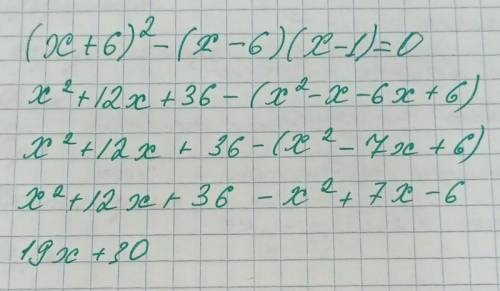 (x+6)² - (x-6)(x-1)=0
x²+12x+36-(x²-x-6x+6)
x²+12x+36-(x²-7x+6)
x²+12x+36-x²+7x-6
19x+30